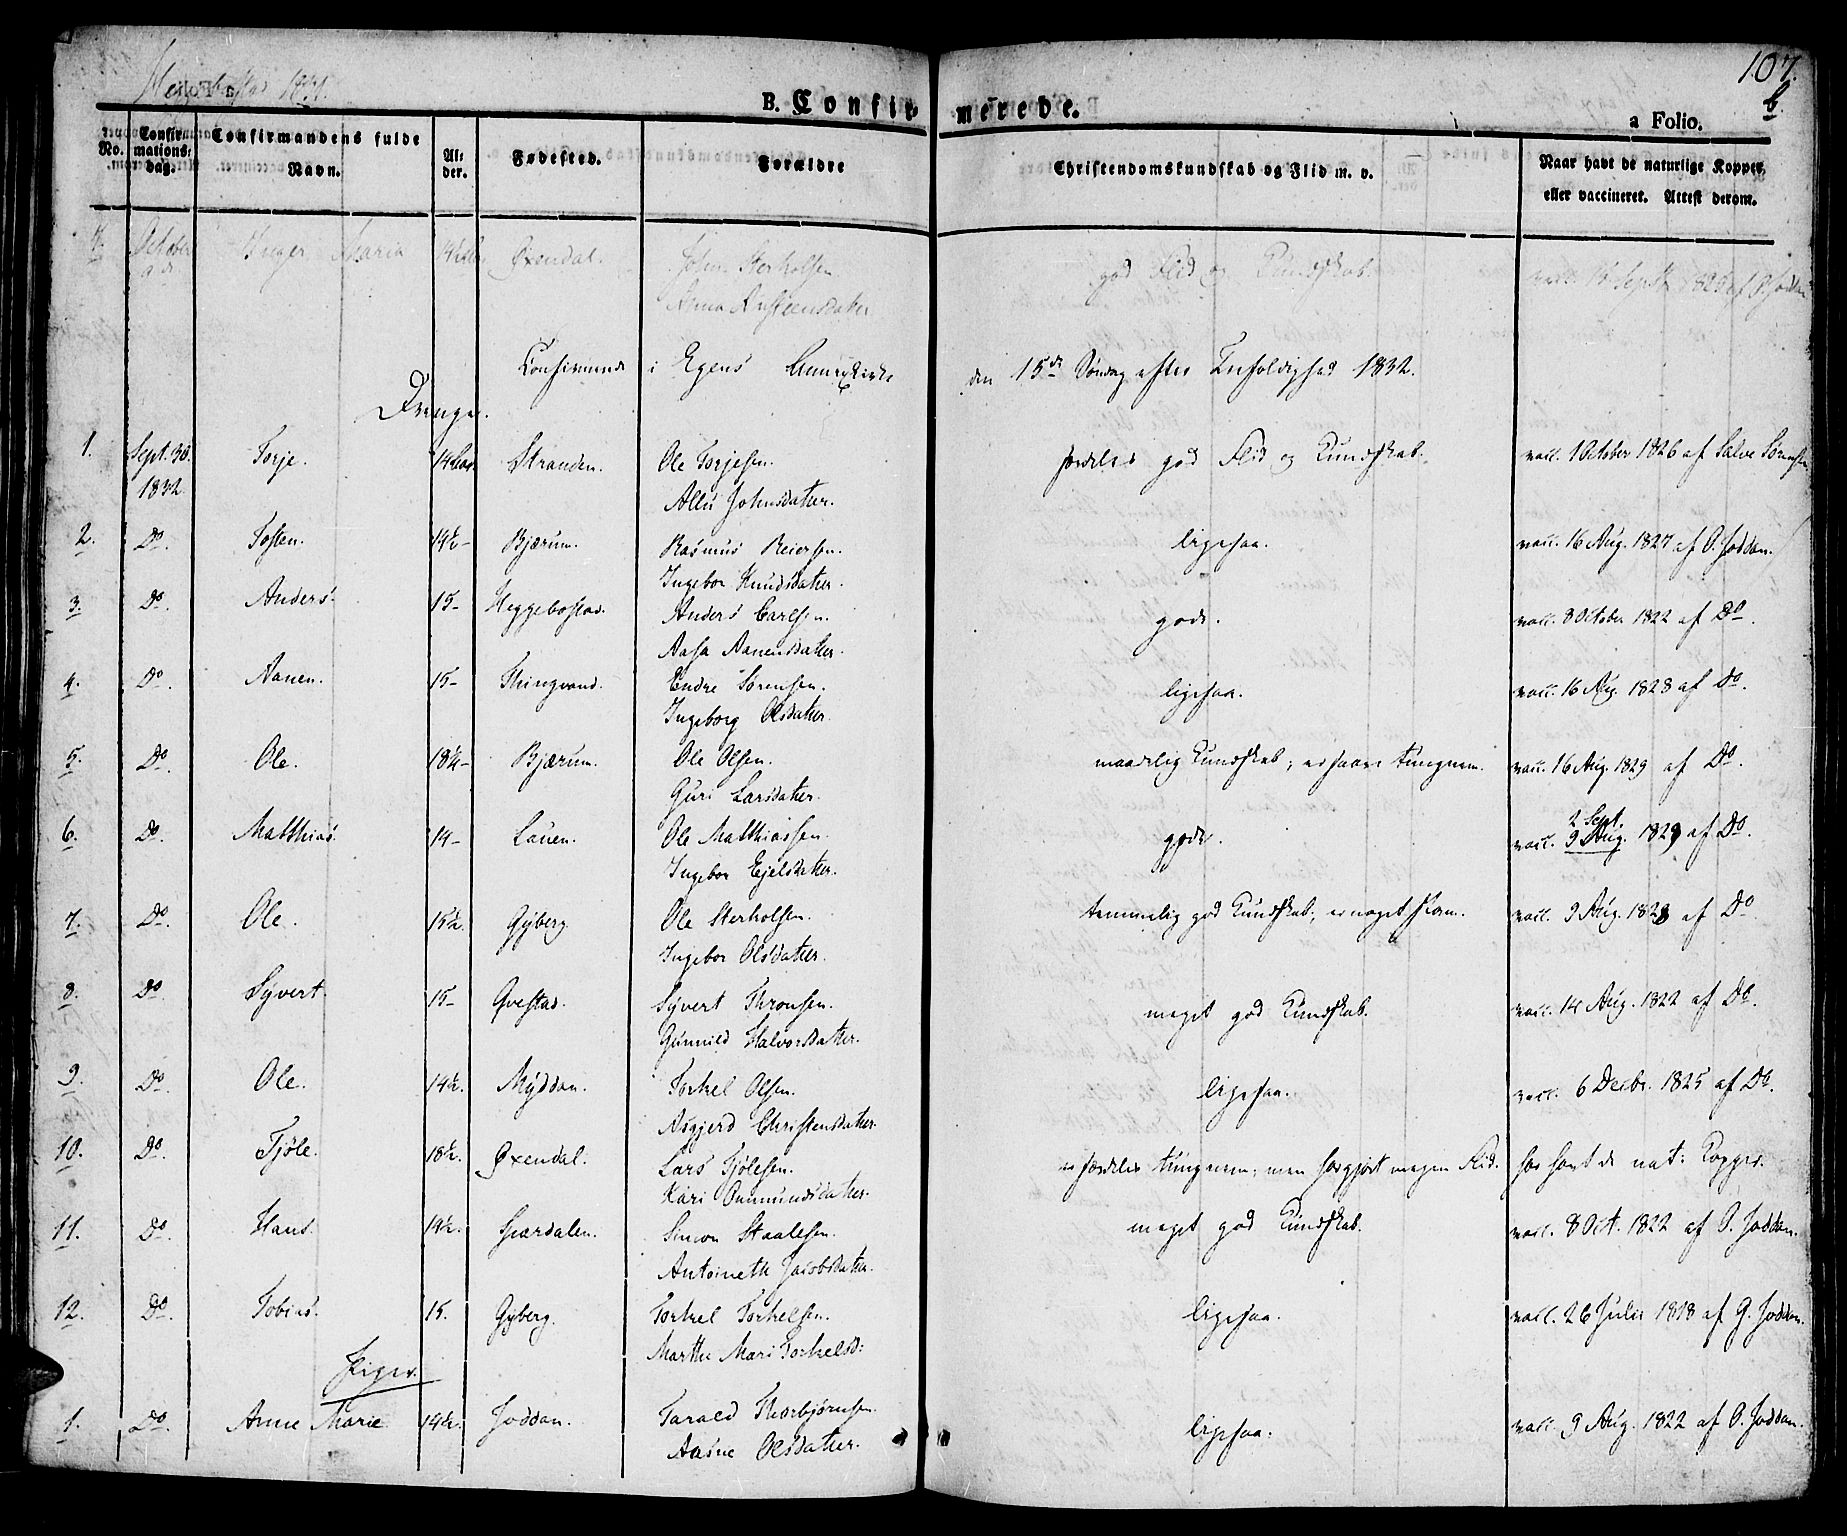 107.
b.
Heggebostad 1831.
B. Confirmerede.
a Folio.
No. Confirmations-dag. Confirmandens fulde Navn. Alder. Fødested. Forældre Christendomskundskab og Flid m. v. Naar havt de naturlige Kopper, eller vaccineret. Attest derom.
4. October 9de Inger Maria 14½ Øxendal. John Sterkolsen god Flid og Kundskab. vacc. 16 Septb 1826 af O. Joddan
Anna Austensdatter
Confirmerede i Egens Annexkirke den 15de Søndag efter Trefoldighed 1832.
Drenge.
1. Sept. 30. Torje. 14 Stranden. Ole Torjesen. særdeles god Flid og Kundskab. vacc. 1 October 1826 af Salve Sørensen
1832 Allu Johnsdatter.
2. Do. Tosten. 14½ - Bjærum. Rasmus Reiersen. ligesaa. vacc. 16 Aug. 1827 af O. Joddan.
Ingebor Knudsdatter.
3. Do. Anders. 15 - Heggebostad. Anders Carlsen. gode. vacc. 8 October 1822 af Do.
Aasa Aanensdatter.
4. Do. Aanen. 15 - Thingvand. Endre Sørensen. ligesaa. vacc. 16 Aug. 1828 af Do.
Ingeborg Olsdatter.
5. Do. Ole. 18¼ - Bjærum. Ole Olsen. maadelig Kundskab; er saare tungnem. vacc. 16 Aug. 1829 af Do.
Guri Larsdatter.
2 Sept.
6. Do. Matthias. 14 - Lauen. Ole Matthiassen. gode. vacc. 9 Aug. 1829 af Do
Ingebor Ejelsdatter.
7. Do. Ole. 15½. Gyberg. Ole Sterkolsen. temmelig god Kundskab; er noget sløv. vacc. 9 Aug. 1828 af Do
Ingebor Olsdatter.
8. Do. Syvert. 15 - Qvestad. Syvert Thronsen. meget god Kundskab. vacc. 14 Aug. 1822 af Do.
Gunnild Halvorsdatter.
9. Do. Ole. 14½. Myddan. Torkel Olsen. ligesaa. vacc. 6 Decbr. 1825 af Do.
Asgjerd Christensdatter.
10. Do. Tjøle. 18½. Øxendal. Lars Tjølesen. er særdeles tungnem; men har gjort megen Flid. har havt de nat: Kopper.
Kari Omundsdatter.
11. Do. Hans. 14½. Gjærdalen. Simon Staalesen. meget god Kundskab. vacc. 8 Oct. 1822 af O. Joddan.
Antoineth Jacobsdatter.
12. Do. Tobias. 15. Gyberg. Torkel Torkelsen. ligesaa. vacc. 26 Julii 1818 af G. Joddan.
Marthe Mari Torkelsd:
Piger.
1. Do. Anne Marie 14½. Joddan. Tarald Thorbjørnsen. ligesaa. vacc. 9 Aug. 1822 af O. Joddan.
Aasne Olsdatter.